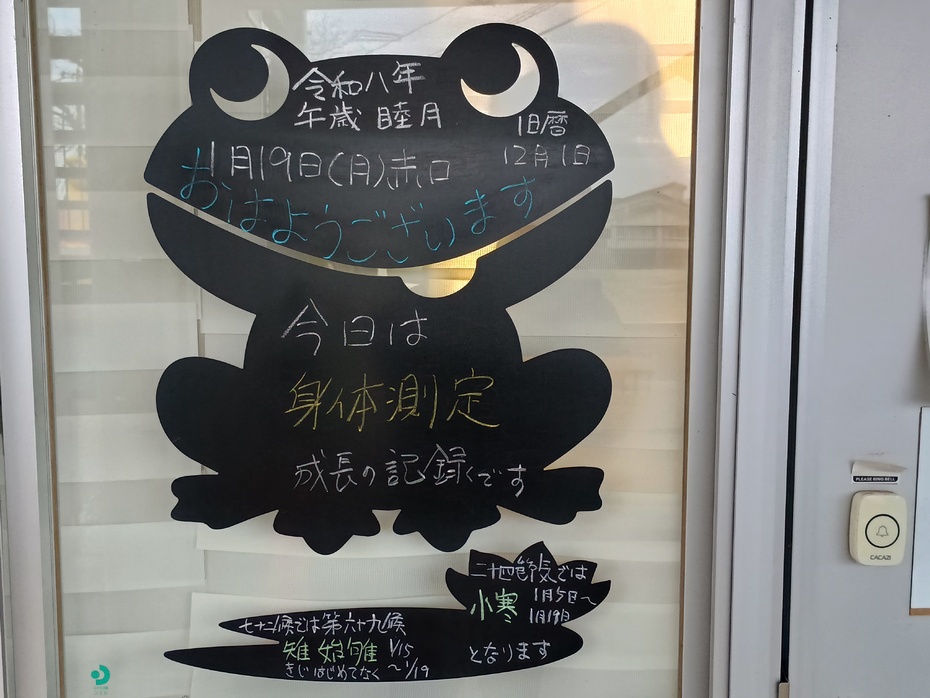 令和八年
午歳 睦月
旧暦
12月1日
1月19日(月)赤口
おはようございます
今日は
身体測定
成長の記録です
二十四節気では
小寒 1月5日〜
1月19日
となります
七十二候では第六十九候
雉始雊 1/15
きじはじめてなく 〜1/19
PLEASE RING BELL
CACAZI